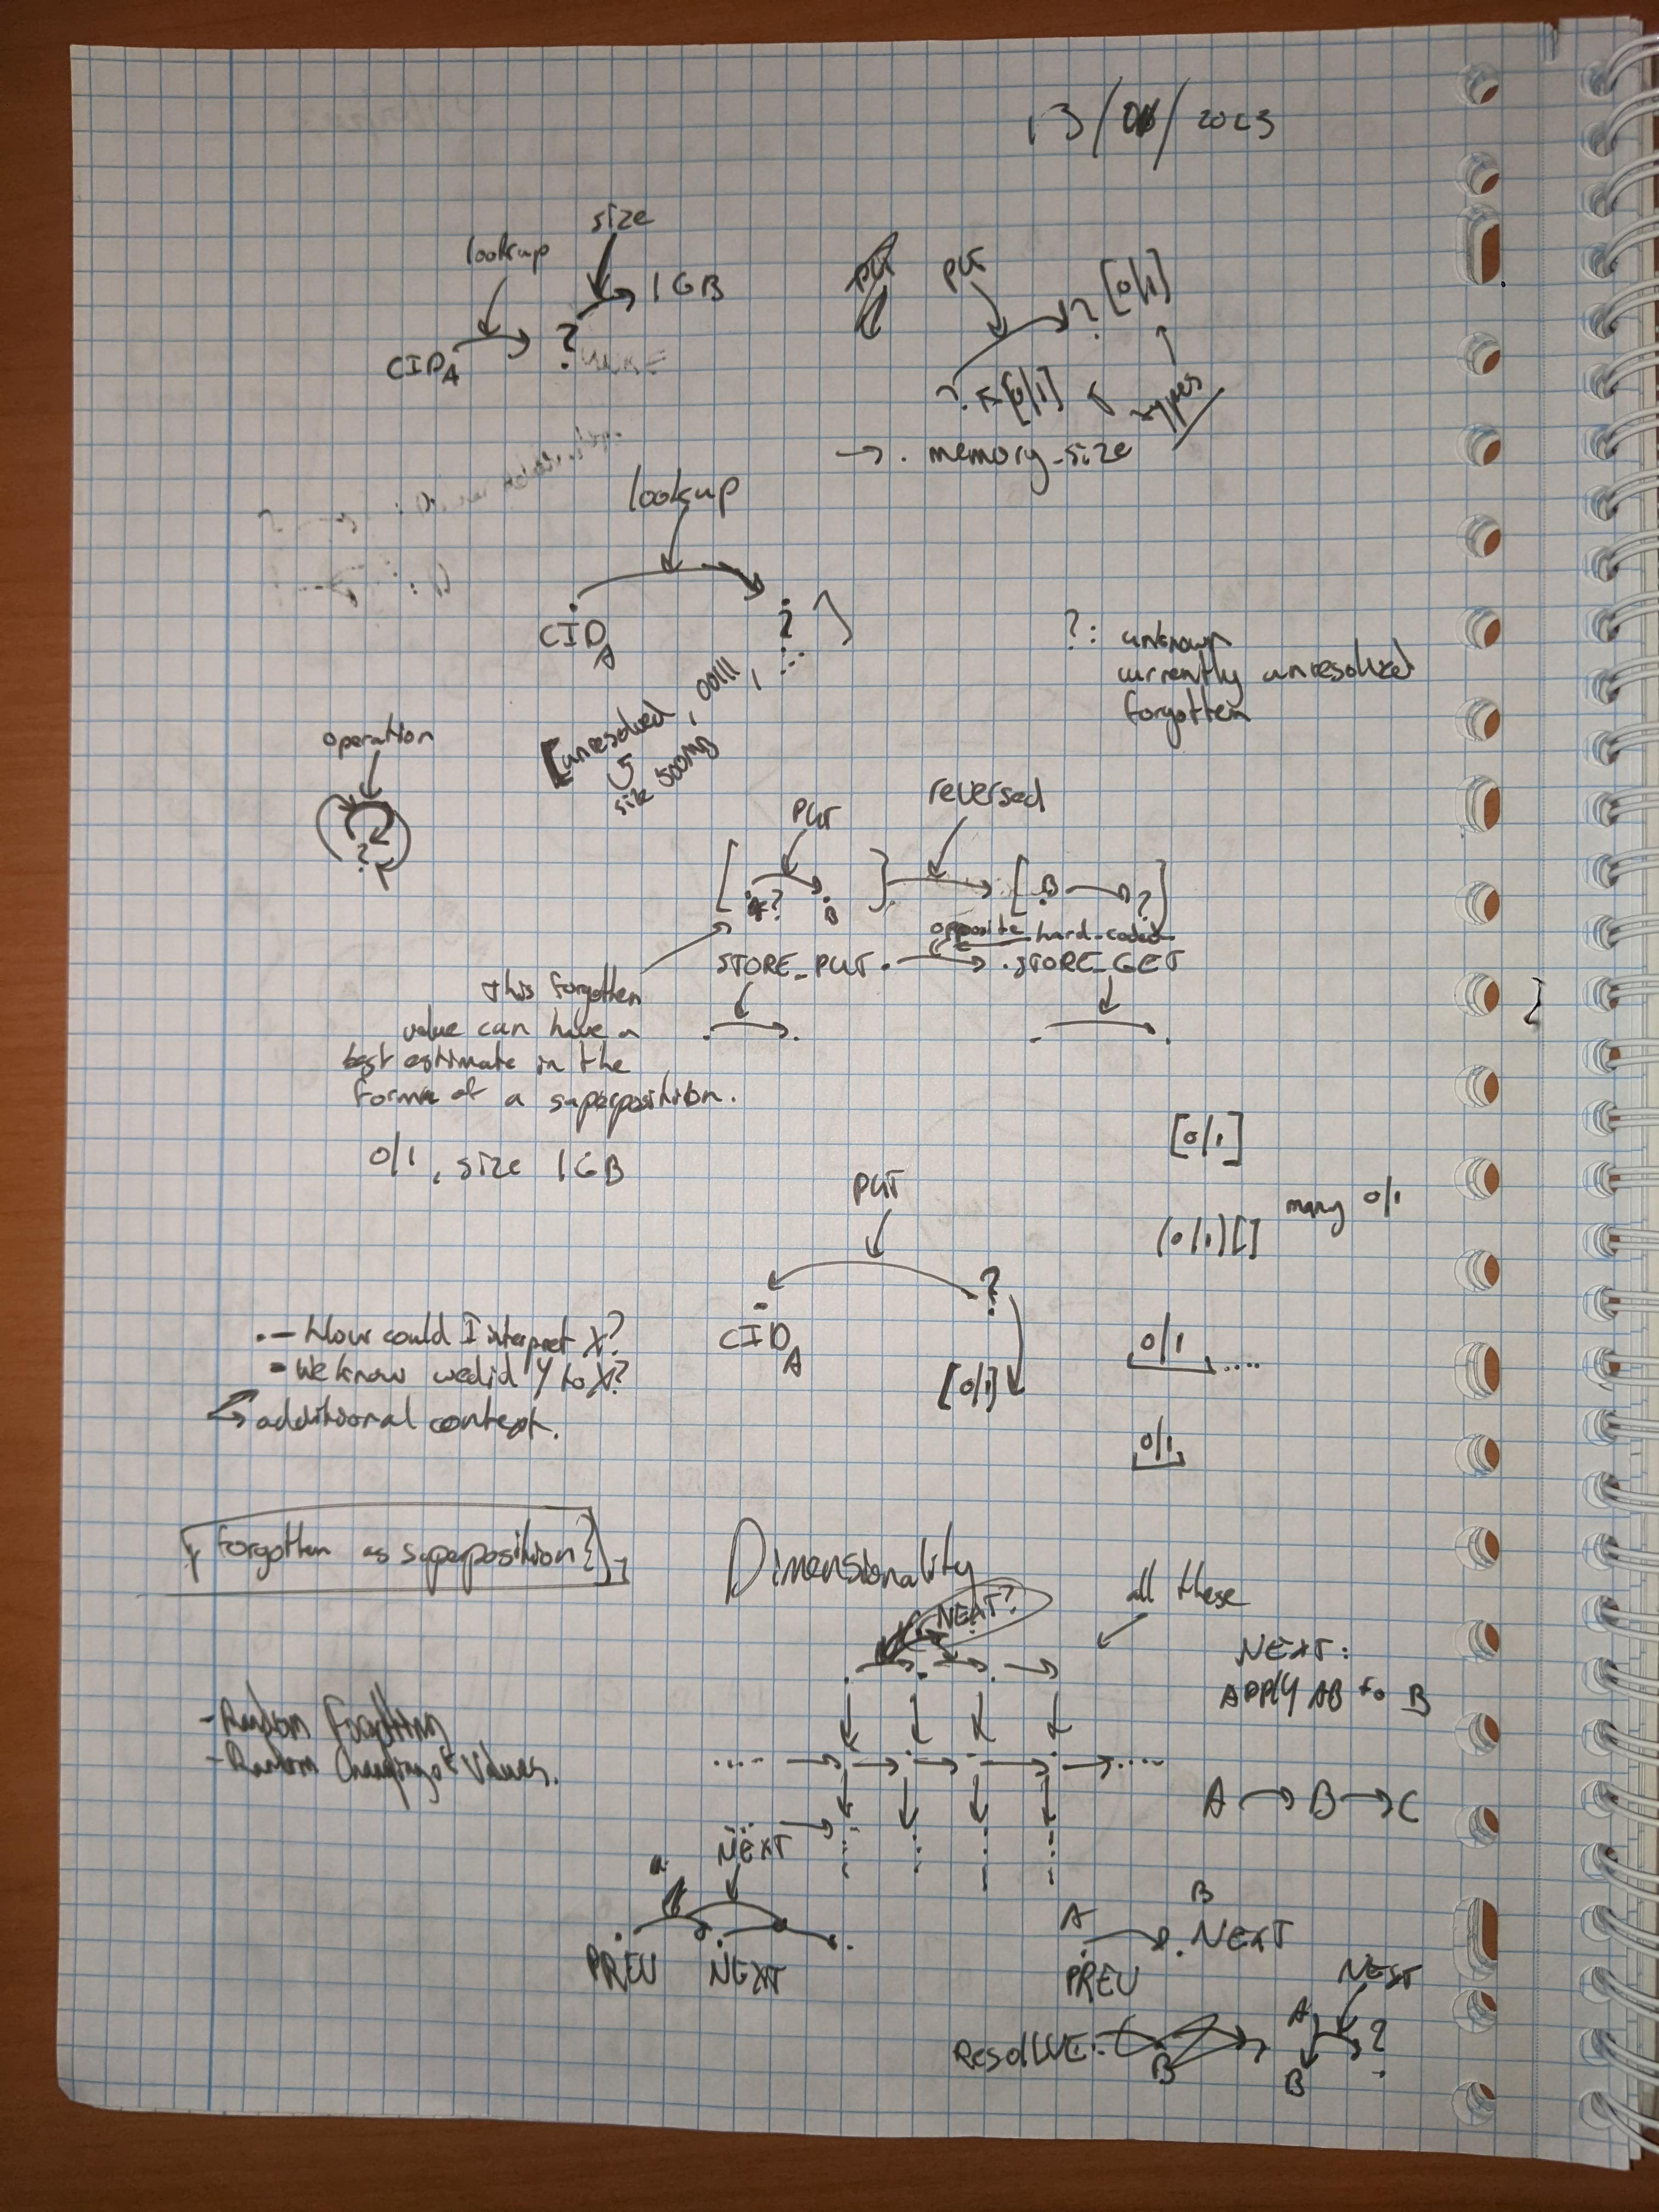 13/ /2023
size
lookup
1GB
PUT
[0/1]
CID A
?
?
? [0/1]
types
→ . memory-size
lookup
CID A
?
?: unknown
currently unresolved
forgotten
[unresolved, 00111,
size 500mb
operation
?
PUT
reversed
[ ? B ]
[ B ? ]
opposite hard-coded
STORE_PUT . . STORE_GET
This forgotten
value can have a
best estimate in the
form of a superposition.
0/1, size 1GB
[0/1]
PUT
many 0/1
(0/1)[]
?
CID A
[0/1]
0/1 ....
0/1
- How could I interpret X?
- We know we did Y to X?
additional context.
forgotten as superposition
Dimensionality
NEXT?
all these
NEXT:
APPLY AB to B
- Random Forgetting
- Random Changing of Values.
A → B → C
NEXT
PREV NEXT
A B
PREV NEXT
NEXT
RESOLVE:
B
A ?
B